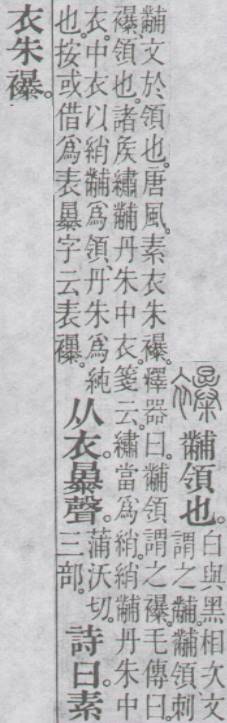 襮 黼領也。白與黑相次文
謂之黼。黼領刺
黼文於領也。唐風。素衣朱襮。釋器曰。黼領謂之襮。毛傳曰
襮領也。諸矦繡黼丹朱中衣。箋云。繡當爲綃。綃黼丹朱中
衣。中衣以綃黼爲領。丹朱爲純
也。按或借爲表㬥字云表襮。
从衣㬥聲。蒲沃切。
三部。
詩曰素
衣朱襮。